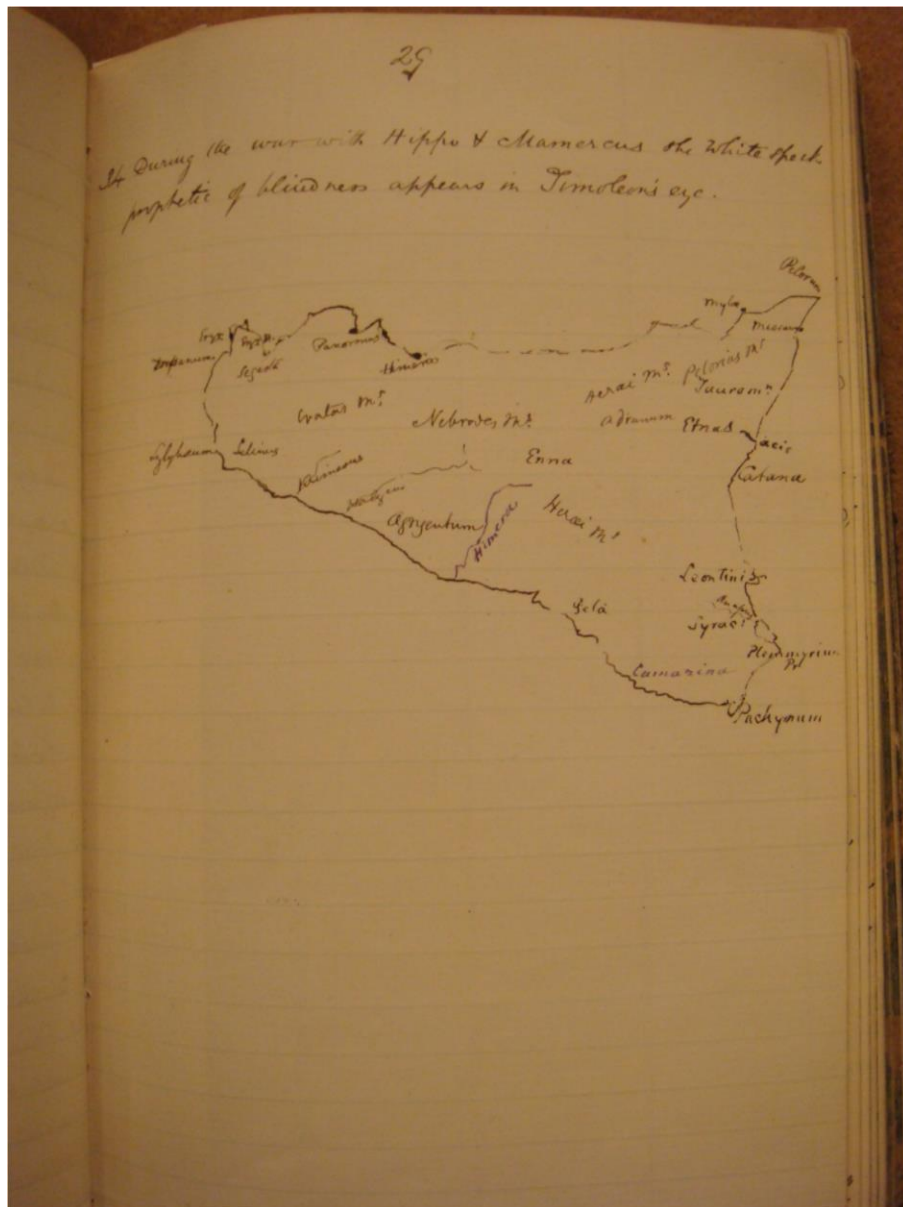 29
24 During the war with Hippo & Mamercus the White speck
prophetic of blindness appears in Timoleon's eye.
Pelorum
Mylae
Messana
Eryx
Panormus
Himera
Drepanum
Segesta
Pelorias Mt
Aerai Mts.
Tauromn
Cratas Mt
Nebrodes Mts.
Adranum
Etnas
Acis
Lylybaum
Selinus
Enna
Catana
Halycus
Agrigentum
Himera
Herai Mt
Leontini
Gela
Syrac
Plemmyrium
Pr
Camarina
Pachynum